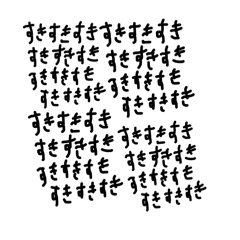 すきすきすきすきすきすき
すきすきすきすきすきすき
すきすきすきすきすきすき
すきすきすきすきすきすき
すきすきすきすきすきすき
すきすきすきすきすきすき
すきすきすきすきすきすき
すきすきすきすきすきすき